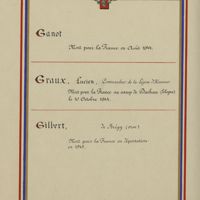 Ganot
Mort pour la France en Août 1944.
Graux, Lucien, Commandeur de la Légion d'Honneur
Mort pour la France au camp de Dachau
le 10 Octobre 1944.
Gilbert, de
Mort pour la France en déportation
en 1945.